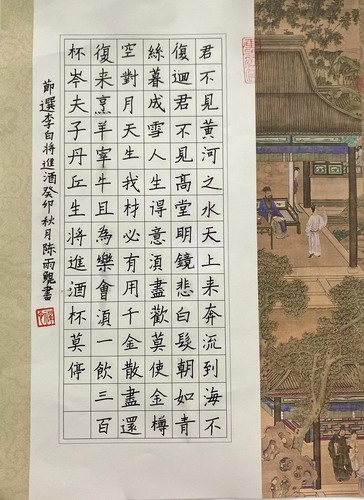 君不見黃河之水天上来奔流到海不
復迴君不見高堂明鏡悲白髮朝如青
絲暮成雪人生得意湏盡歡莫使金樽
空對月天生我材必有用千金散盡還
復来烹羊宰牛且為樂會湏一飲三百
杯岑夫子丹丘生將進酒杯莫停
節選李白將進酒癸卯秋月陳雨書